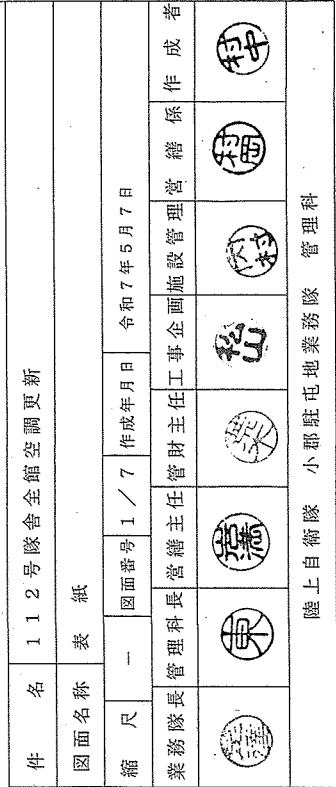 件 名 112号隊舎全館空調更新
図面名称 表 紙
縮 尺 ー 図面番号 1/7 作成年月日 令和7年5月7日
業務隊長 管理科長 営繕主任 管財主任 工事企画 施設管理 営繕係 作成者
松山 村岡 村中
陸上自衛隊 小郡駐屯地業務隊 管理科